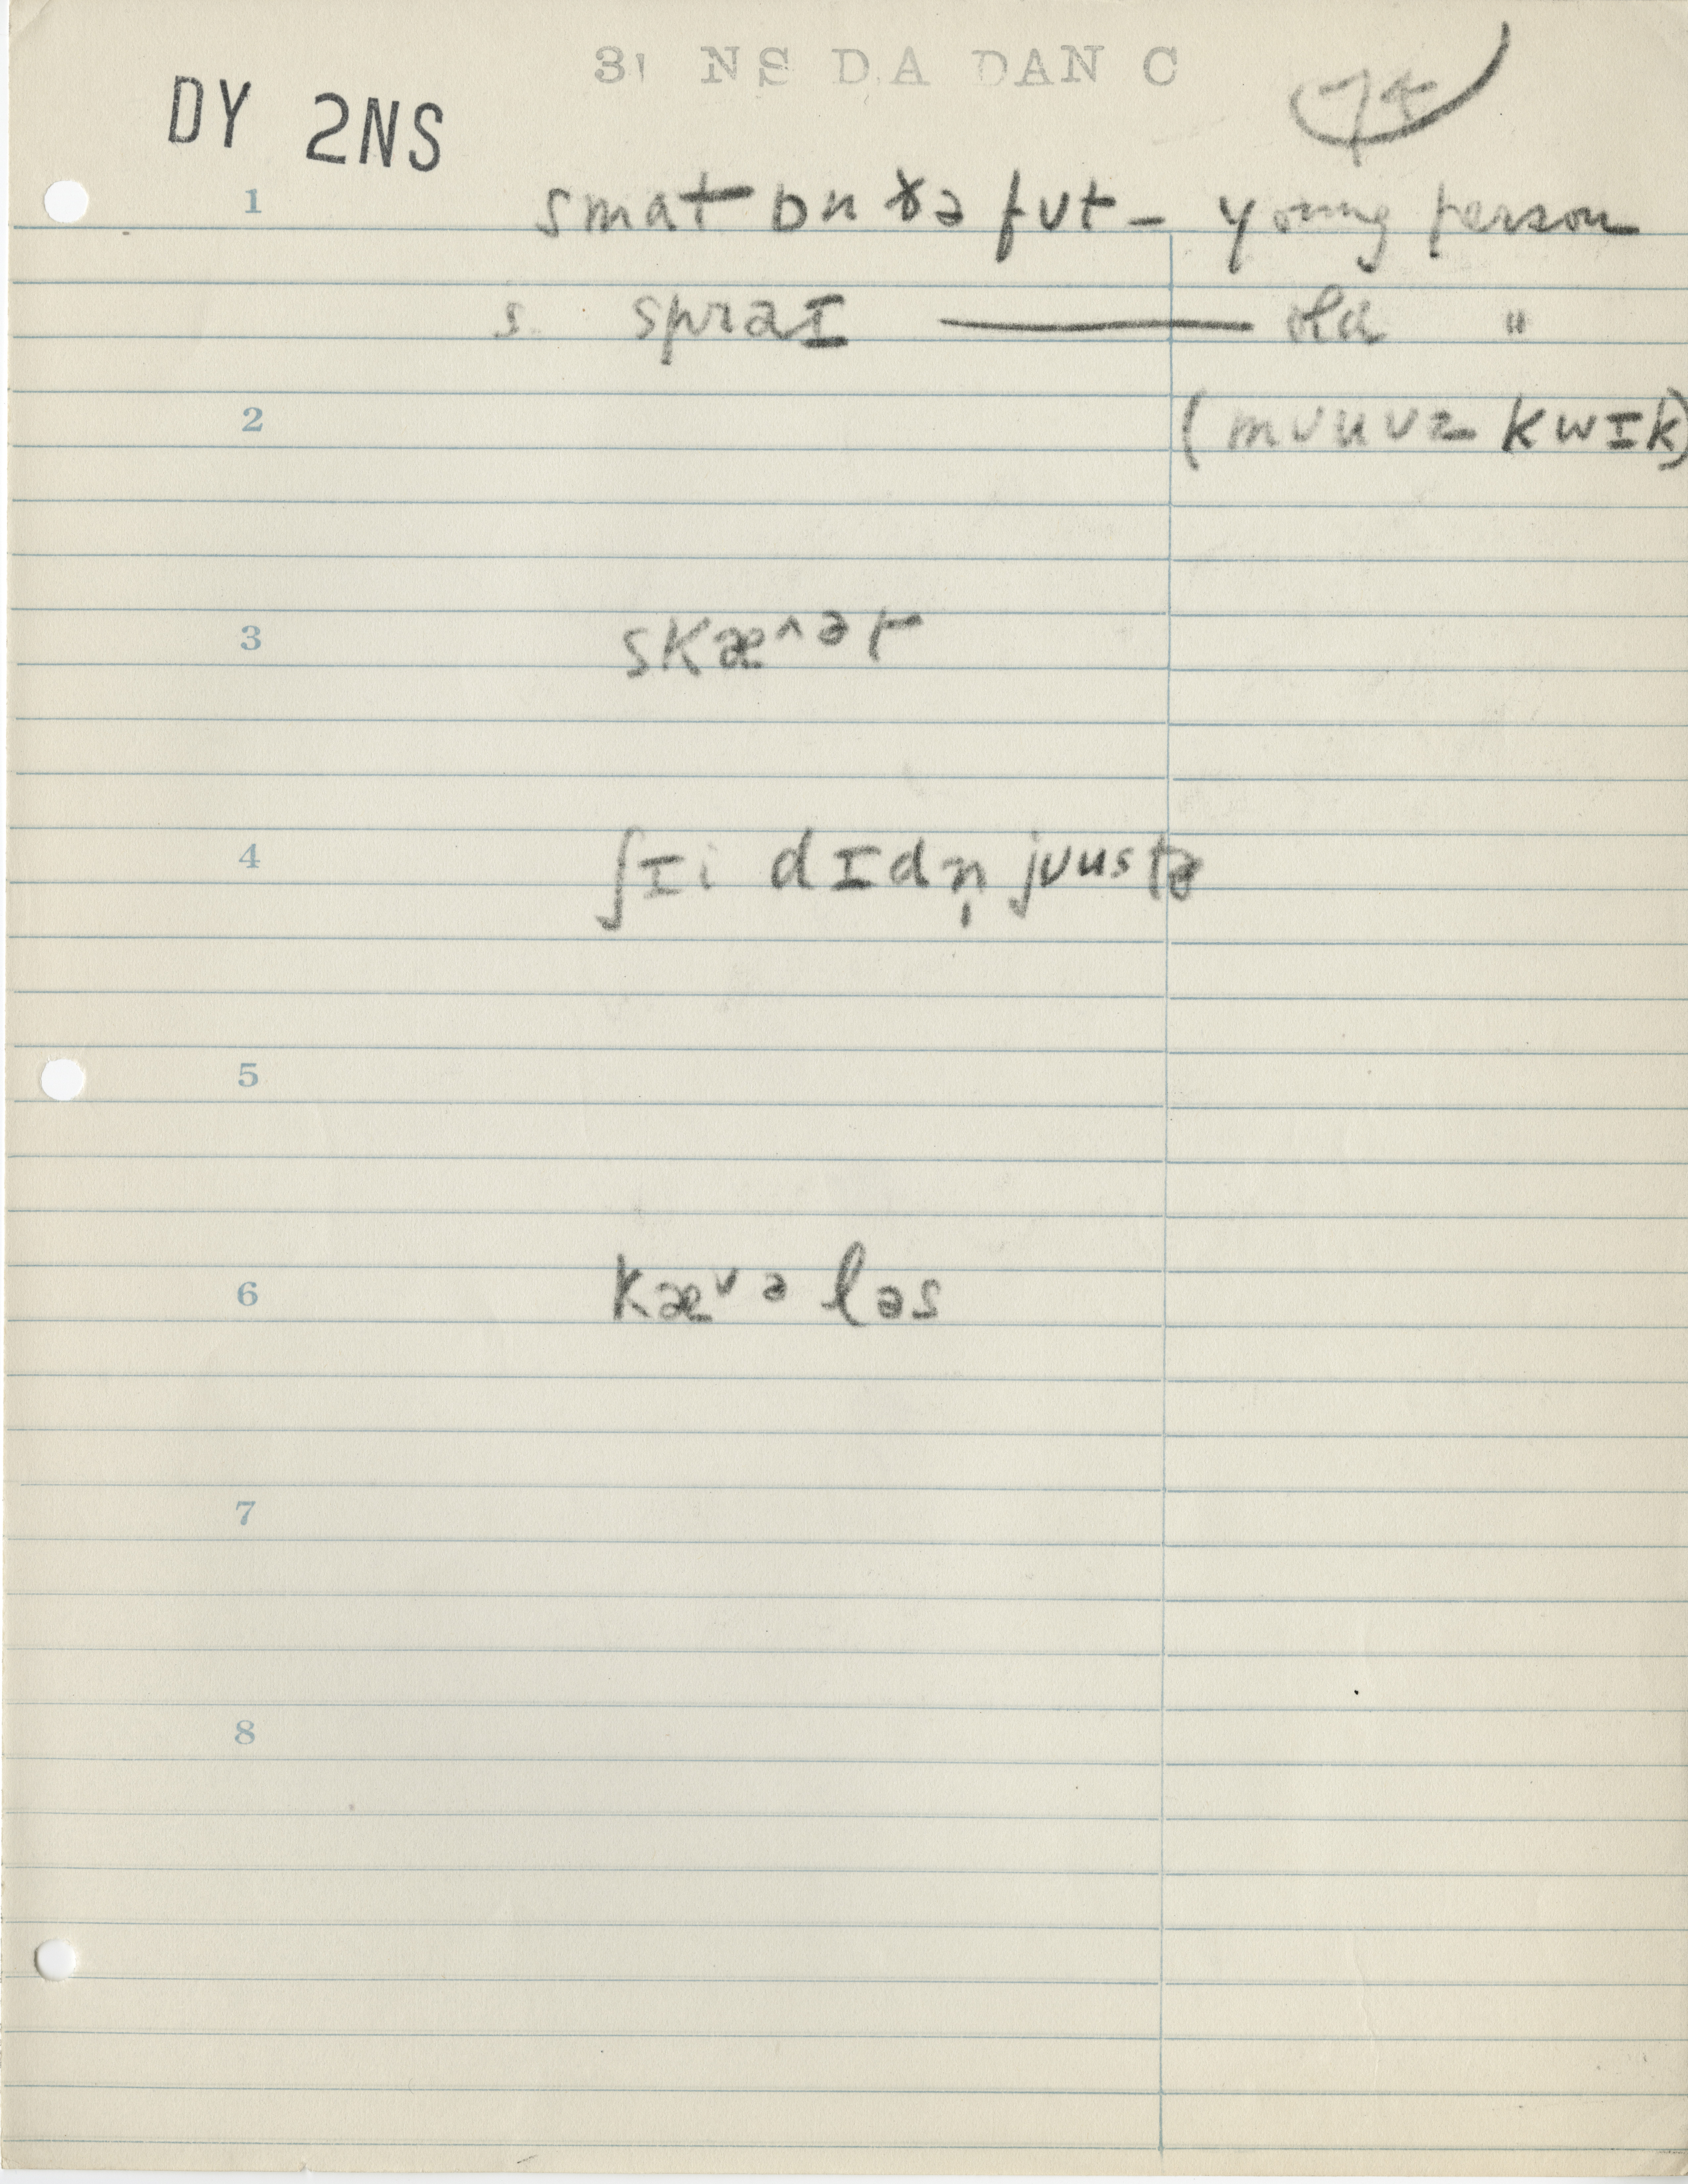 3 NS DA DAN C
DY 2NS
74
1 smat ɒn ðə fut – young person
s. spraɪ —— old "
2 (mʊuvz kwɪk)
3 skæ^ət
4 ʃɪi dɪdn̩ jʊustə
5
6 kæᵛə ləs
7
8